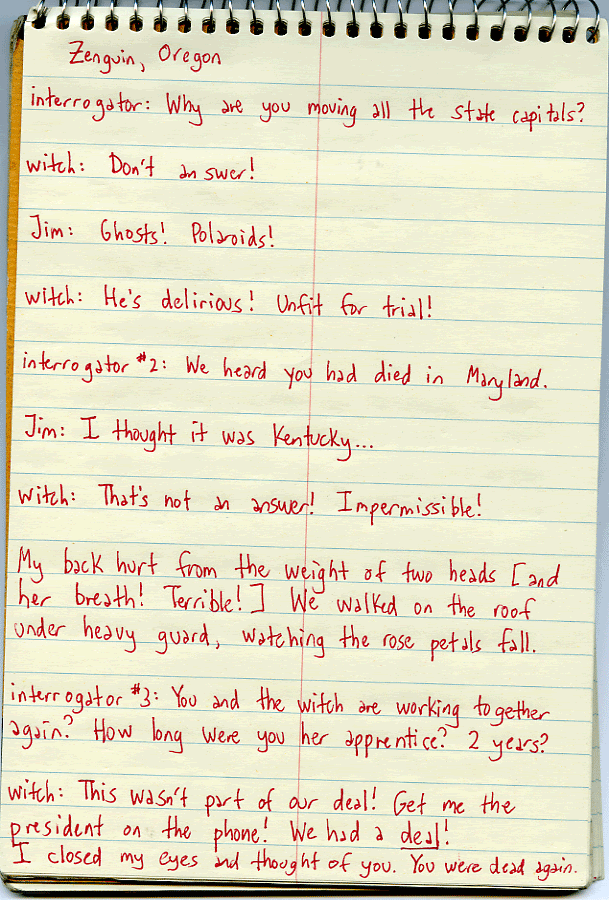 Zenguin, Oregon
interrogator: Why are you moving all the state capitals?
witch: Don't answer!
Jim: Ghosts! Polaroids!
witch: He's delirious! Unfit for trial!
interrogator #2: We heard you had died in Maryland.
Jim: I thought it was Kentucky...
witch: That's not an answer! Impermissible!
My back hurt from the weight of two heads [and
her breath! Terrible!] We walked on the roof
under heavy guard, watching the rose petals fall.
interrogator #3: You and the witch are working together
again? How long were you her apprentice? 2 years?
witch: This wasn't part of our deal! Get me the
president on the phone! We had a deal!
I closed my eyes and thought of you. You were dead again.